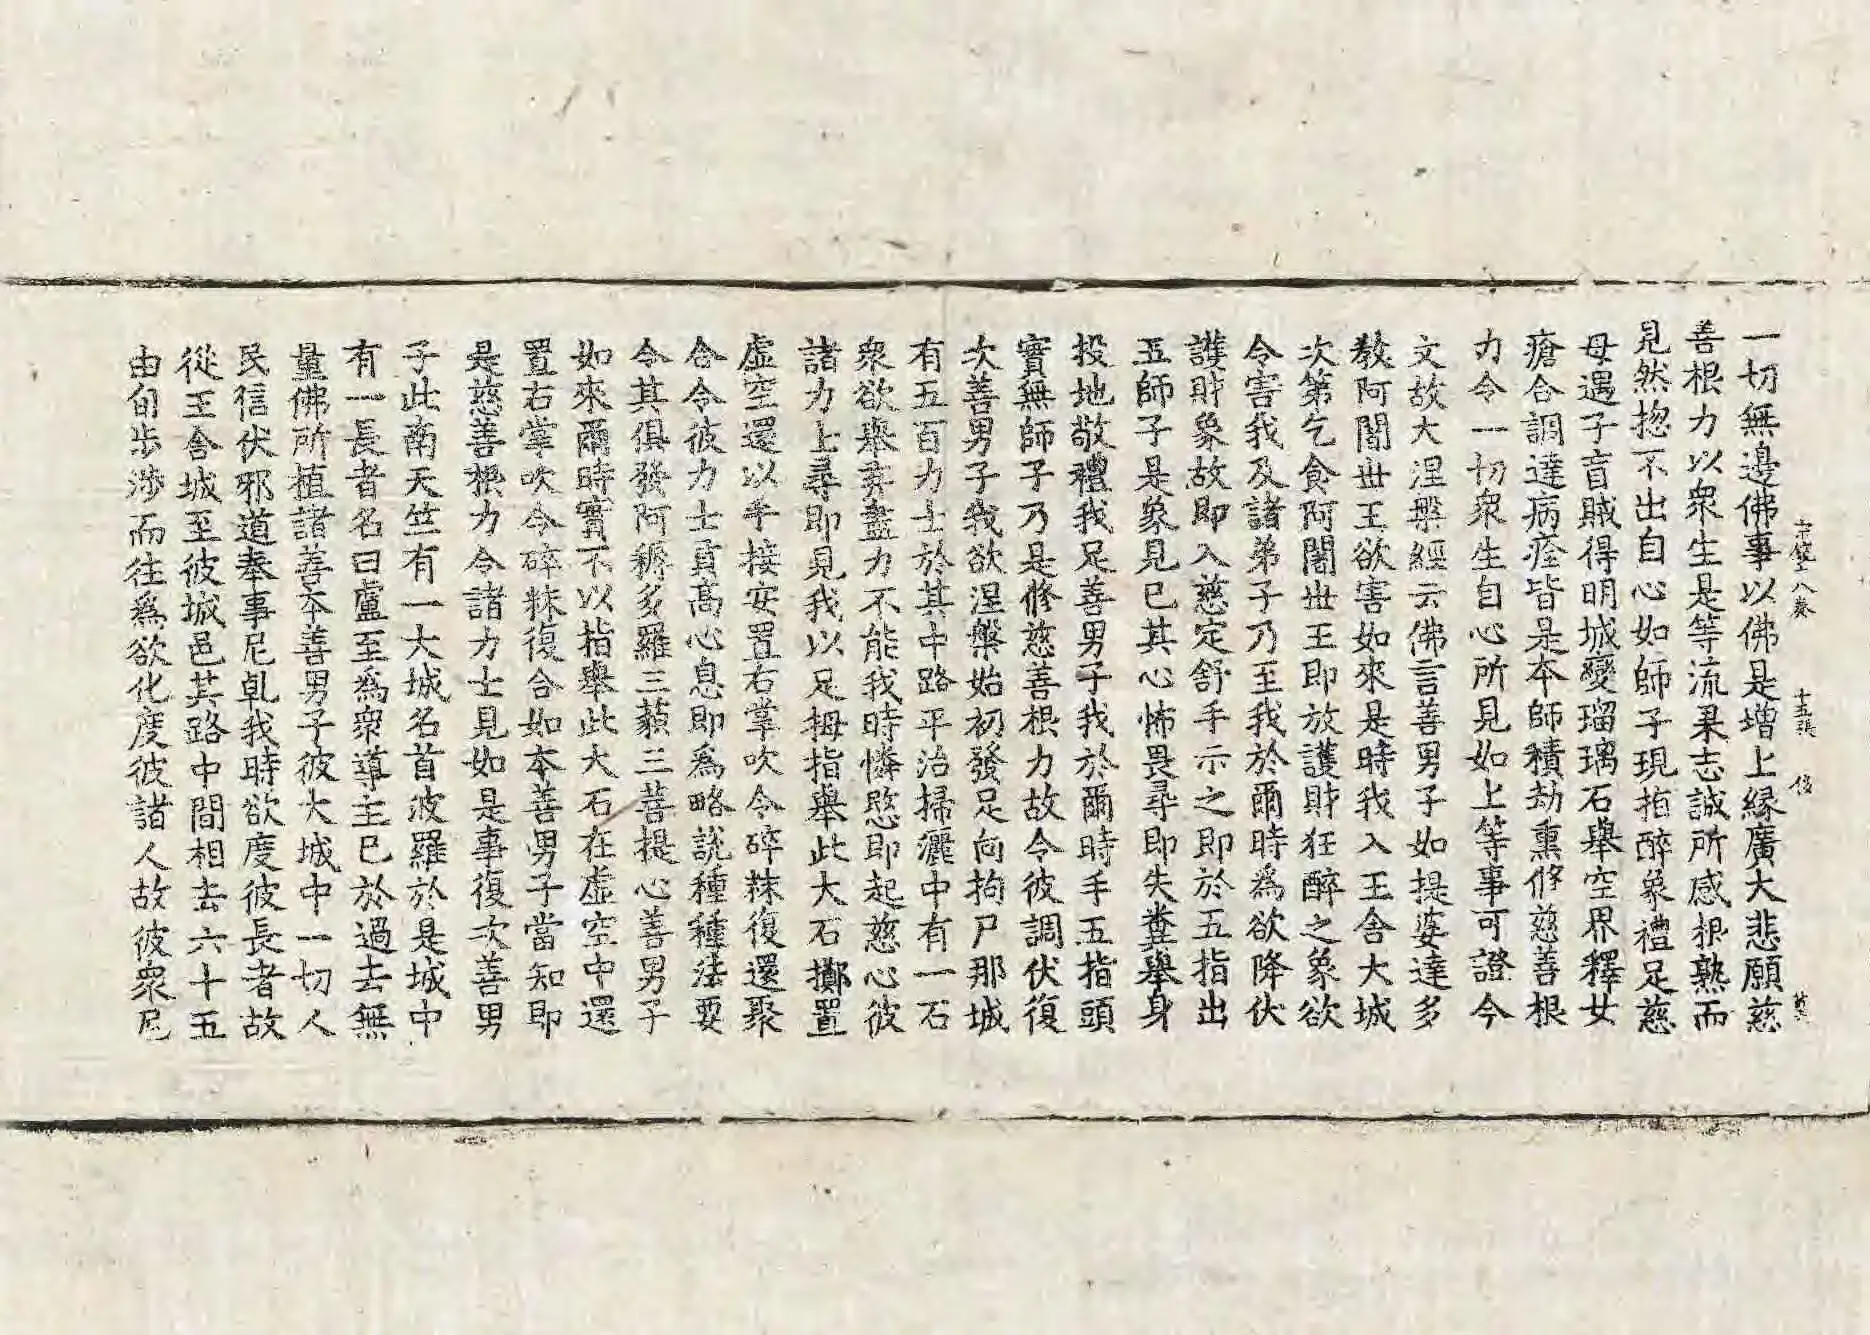 宗鏡十八卷 十五張 俊
一切無邊佛事以佛是增上緣廣大悲願慈
善根力以衆生是等流果志誠所感根熟而
見然揔不出自心如師子現指醉象禮足慈
母遇子盲賊得明城變瑠璃石舉空界釋女
瘡合調達病痊皆是本師積劫熏修慈善根
力令一切衆生自心所見如上等事可證今
文故大涅槃經云佛言善男子如提婆達多
教阿闍世王欲害如來是時我入王舍大城
次第乞食阿闍世王即放護財狂醉之象欲
令害我及諸弟子乃至我於爾時爲欲降伏
護財象故即入慈定舒手示之即於五指出
五師子是象見已其心怖畏尋即失糞舉身
投地敬禮我足善男子我於爾時手五指頭
實無師子乃是修慈善根力故令彼調伏復
次善男子我欲涅槃始初發足向拘尸那城
有五百力士於其中路平治掃灑中有一石
衆欲舉弃盡力不能我時憐愍即起慈心彼
諸力上尋即見我以足拇指舉此大石擲置
虛空還以手接安置右掌吹令碎粖復還聚
合令彼力士貢高心息即爲略說種種法要
令其俱發阿耨多羅三藐三菩提心善男子
如來爾時實不以指舉此大石在虛空中還
置右掌吹令碎粖復合如本善男子當知即
是慈善根力令諸力士見如是事復次善男
子此南天竺有一大城名首波羅於是城中
有一長者名曰盧至爲衆導主已於過去無
量佛所植諸善本善男子彼大城中一切人
民信伏邪道奉事尼乹我時欲度彼長者故
從王舍城至彼城邑其路中間相去六十五
由旬步涉而往爲欲化度彼諸人故彼衆尼